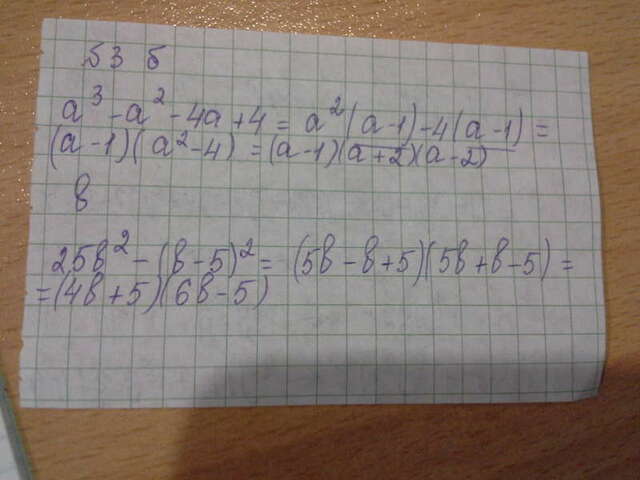 53 б
a³ - a² - 4a + 4 = a²(a-1) - 4(a-1) =
(a-1)(a²-4) = (a-1)(a+2)(a-2)
в
25в² - (в-5)² = (5в - в + 5)(5в + в - 5) =
= (4в + 5)(6в - 5)